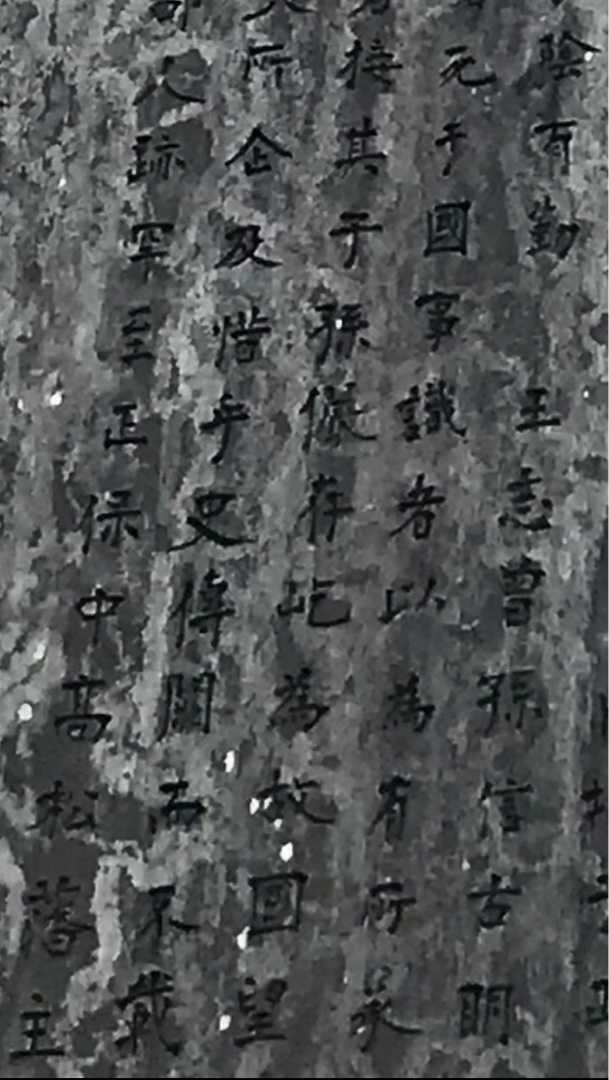 陰有勤王志曾孫信古明
元于國事識者以為有所承
接其于孫儼存屹為故國望
所企及惜乎史傳闕而不載
人跡罕至正保中高松藩主